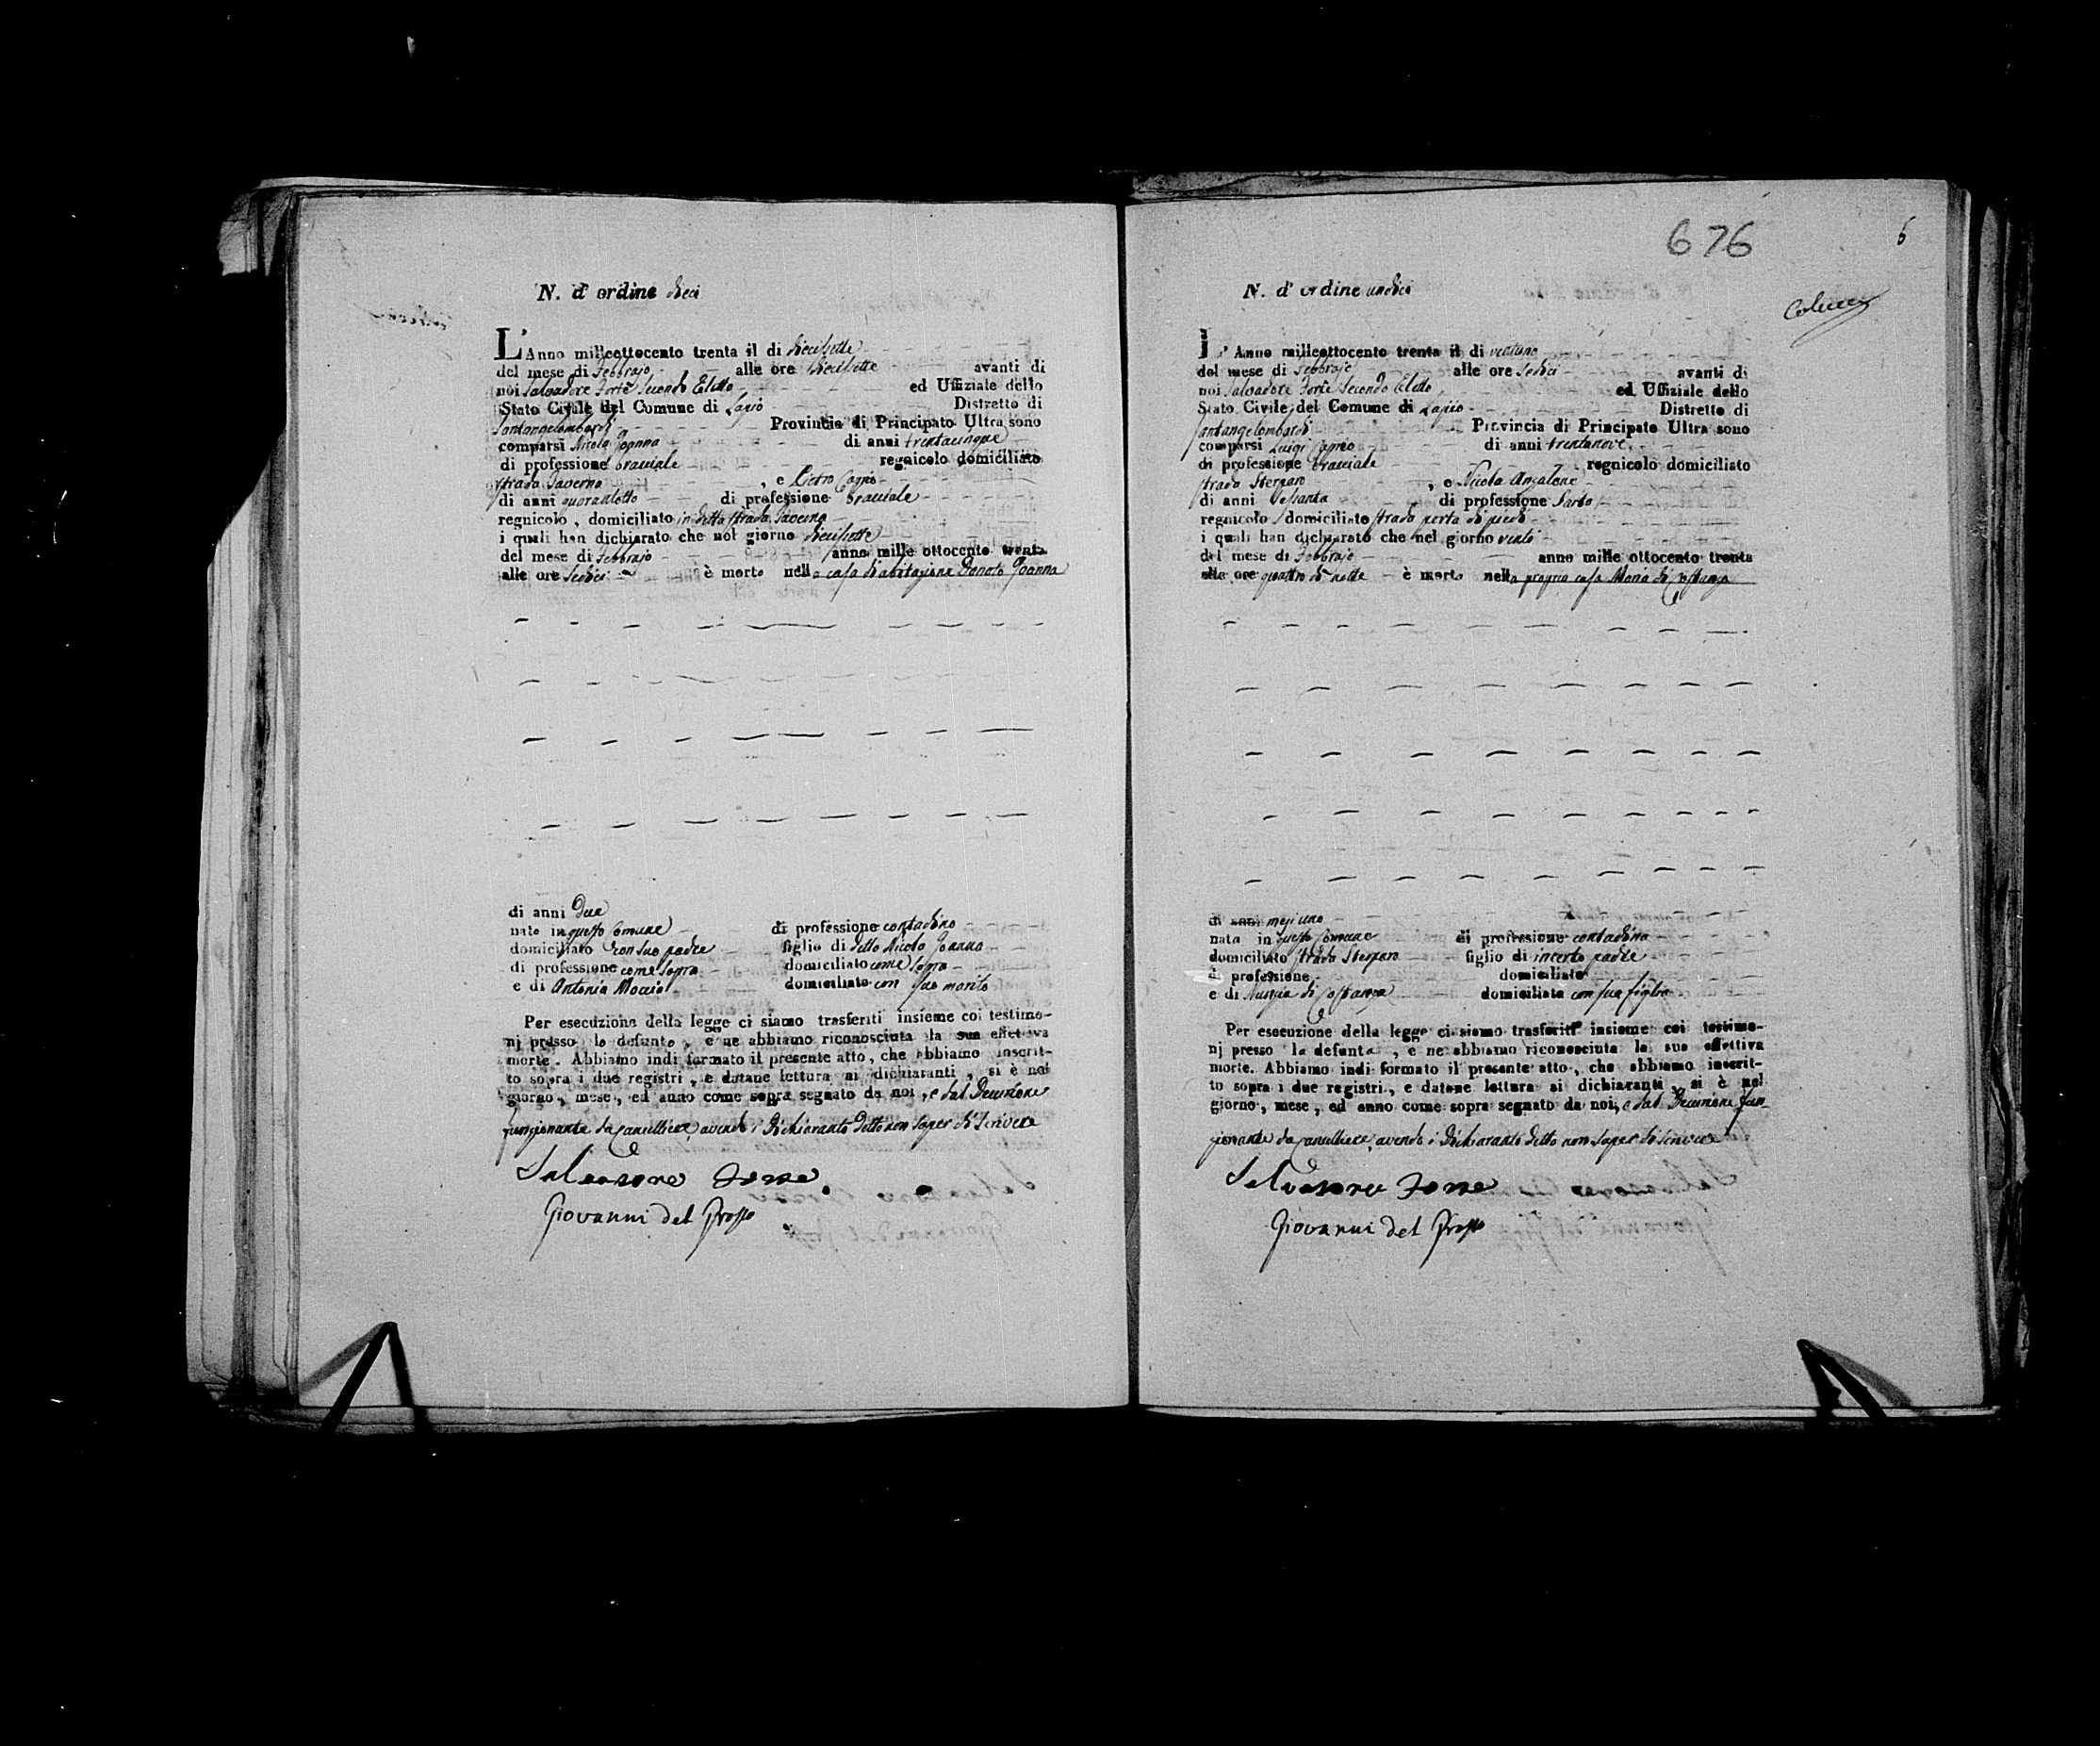 N. d' ordine dieci
L'Anno milleottocento trenta il di diecisette
del mese di Febbrajo alle ore diecisette avanti di
noi Salvadore Forte Secondo Eletto ed Uffiziale dello
Stato Civile del Comune di Lapio Distretto di
Santangelombardi Provincia di Principato Ultra sono
comparsi Nicola Joanna di anni trentacinque
di professione bracciale regnicolo domiciliato
strada Taverna , e Pietro Carpio
di anni quarantotto di professione bracciale
regnicolo , domiciliato in detta strada Taverna
i quali han dichiarato che nel giorno diecisette
del mese di Febbrajo anno mille ottocento trenta
alle ore sedici è morto nella casa d'abitazione Donato Joanna
di anni due
nato in questo Comune di professione contadino
domiciliato con suo padre figlio di detto Nicola Joanna
di professione come sopra domiciliato come sopra
e di Antonia Moccia domiciliato con suo marito
Per esecuzione della legge ci siamo trasferiti insieme coi testimo-
nj presso lo defunto , e ne abbiamo riconosciuta la sua effettiva
morte . Abbiamo indi formato il presente atto , che abbiamo inscrit-
to sopra i due registri , e datane lettura ai dichiaranti , si è nel
giorno , mese , ed anno come sopra segnato da noi , e dal Decurione
funzionante da Cancelliere, avendo i dichiaranti detto non saper di scrivere
Salvadore Forte
Giovanni del Grosso
676
6
N. d' ordine undici
L' Anno milleottocento trenta il di ventuno
del mese di Febbrajo alle ore sedici avanti di
noi Salvadore Forte Secondo Eletto ed Uffiziale dello
Stato Civile del Comune di Lapio Distretto di
Santangelombardi Provincia di Principato Ultra sono
comparsi Luigi Carpio di anni trentanove
di professione bracciale regnicolo domiciliato
strada Sterparo , e Nicola Anzalone
di anni sessanta di professione sarto
regnicolo , domiciliato strada porta di piedi
i quali han dichiarato che nel giorno venti
del mese di Febbrajo anno mille ottocento trenta
alle ore quattro di notte è morta nella propria casa Maria di Costanza
di anni mesi uno
nata in questo Comune di professione contadina
domiciliato strada Sterparo figlio di incerto padre
di professione domiciliato
e di Nunzia di Costanza domiciliata con sua figlia
Per esecuzione della legge ci siamo trasferiti insieme coi testimo-
nj presso la defunta , e ne abbiamo riconosciuta la sua effettiva
morte. Abbiamo indi formato il presente atto , che abbiamo inscrit-
to sopra i due registri , e datane lettura ai dichiaranti , si è nel
giorno , mese , ed anno come sopra segnato da noi, e dal Decurione fun-
zionante da Cancelliere, avendo i dichiaranti detto non saper di scrivere
Salvadore Forte
Giovanni del Grosso